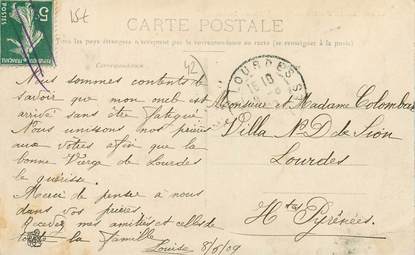 15t
5
CARTE POSTALE
Tous les pays étrangers n'acceptent pas la correspondance au recto (se renseigner à la poste)
Correspondance
42
LOURDES
Nous sommes contents de
savoir que mon oncle est
arrivé sans être fatigué.
Nous unissons nos prières
aux vôtres afin que la
bonne Vierge de Lourdes
le guérisse.
Merci de penser à nous
dans vos prières.
Recevez mes amitiés et celles de
toute la famille
Louise 8/5/09
Monsieur et Madame Colombat
Villa N.D de Sion
Lourdes
Htes Pyrénées.